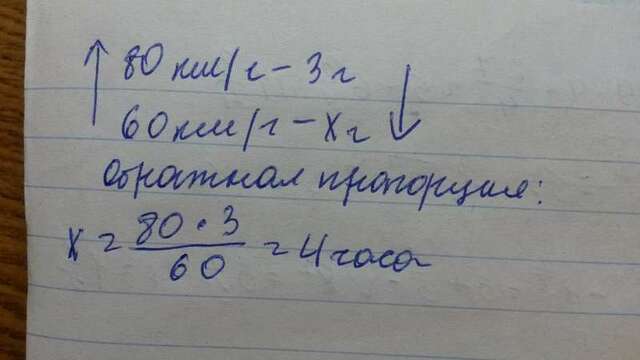 80 км/ч – 3 ч
60 км/ч – x ч
обратная пропорция:
x = 80 · 3 / 60 = 4 часа